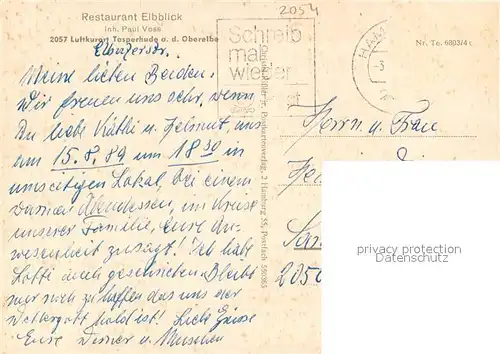 Restaurant Elbblick
Inh. Paul Voss
2057 Luftkurort Tesperhude a. d. Oberelbe
Elbuferstr.
2054
Schreib
mal
wieder
Nr. Te. 6803/4 r.
Meine lieben Beiden.
Wir freuen uns sehr, wenn
Du liebe Käthi u. Helmut, uns
am 15.8.89 um 18 30 in
umseitigen Lokal, bei einem
Abendessen, im Kreise
unserer Familie, Eure An-
wesenheit zusagt! Ich habe
Lotti auch geschrieben. Bleibt
nur noch zu hoffen das uns der
Wettergott hold ist! Liebe Grüsse
Eure u.
2 Hamburg 55, Postfach 550365
Herrn u. Frau
2050
privacy protection
Datenschutz